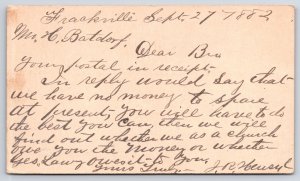 Frackville Sept 27 1882
Mr. H. Batdorf.
Dear Bro
your postal in receipt
In reply would say that
we have no money to spare
at present, you will have to do
the best you can then we will
find out whether we as a church
owe you the money or whether
yours Truly